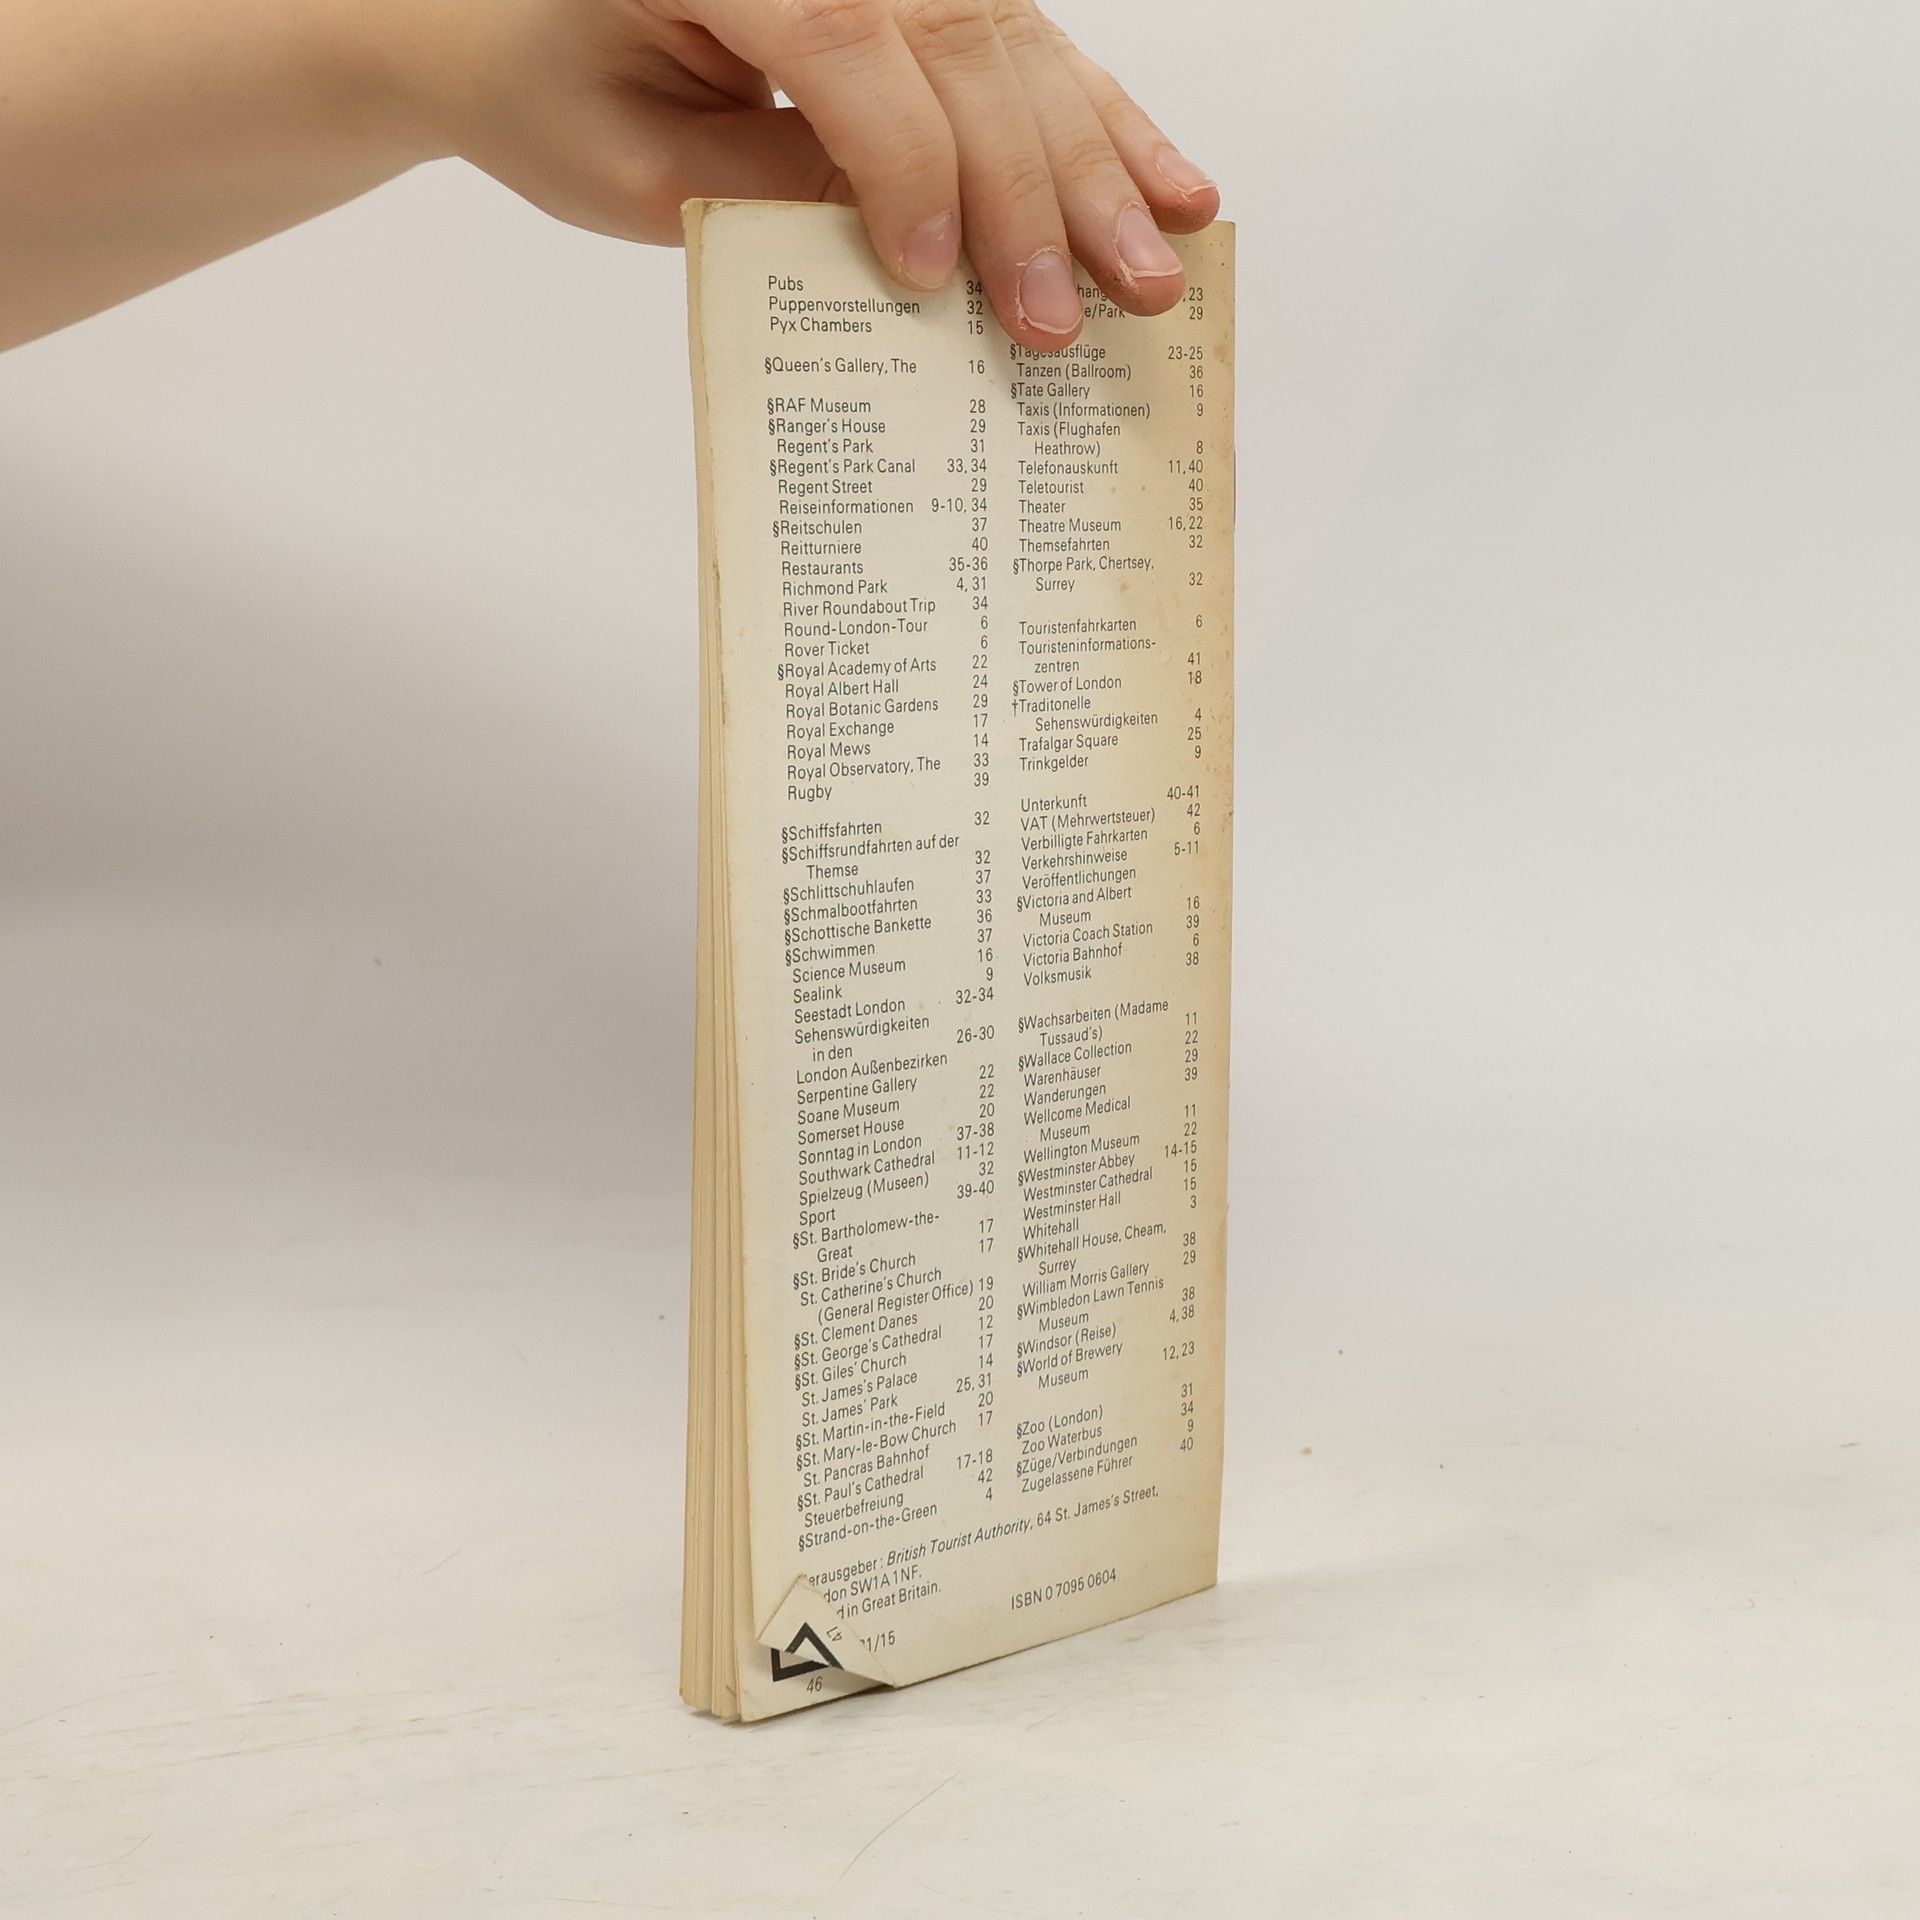 Pubs 34
Puppenvorstellungen 32
Pyx Chambers 15
§Queen's Gallery, The 16
§RAF Museum 28
§Ranger's House 29
Regent's Park 31
§Regent's Park Canal 33, 34
Regent Street 29
Reiseinformationen 9-10, 34
§Reitschulen 37
Reitturniere 40
Restaurants 35-36
Richmond Park 4, 31
River Roundabout Trip 34
Round-London-Tour 6
Rover Ticket 6
§Royal Academy of Arts 22
Royal Albert Hall 24
Royal Botanic Gardens 29
Royal Exchange 17
Royal Mews 14
Royal Observatory, The 33
Rugby 39
§Schiffsfahrten 32
§Schiffsrundfahrten auf der
Themse 32
§Schlittschuhlaufen 37
§Schmalbootfahrten 33
§Schottische Bankette 36
§Schwimmen 37
Science Museum 16
Sealink 9
Seestadt London 32-34
Sehenswürdigkeiten
in den 26-30
London Außenbezirken
Serpentine Gallery 22
Soane Museum 22
Somerset House 20
Sonntag in London 37-38
Southwark Cathedral 11-12
Spielzeug (Museen) 32
Sport 39-40
§St. Bartholomew-the-
Great 17
§St. Bride's Church 17
St. Catherine's Church
(General Register Office) 19
§St. Clement Danes 20
§St. George's Cathedral 12
§St. Giles' Church 17
St. James's Palace 14
St. James' Park 25, 31
§St. Martin-in-the-Field 20
§St. Mary-le-Bow Church 17
St. Pancras Bahnhof
§St. Paul's Cathedral 17-18
Steuerbefreiung 42
§Strand-on-the-Green 4
23
e/Park 29
§Tagesausflüge 23-25
Tanzen (Ballroom) 36
§Tate Gallery 16
Taxis (Informationen) 9
Taxis (Flughafen
Heathrow) 8
Telefonauskunft 11, 40
Teletourist 40
Theater 35
Theatre Museum 16, 22
Themsefahrten 32
§Thorpe Park, Chertsey,
Surrey 32
Touristenfahrkarten 6
Touristeninformations-
zentren 41
§Tower of London 18
†Traditonelle
Sehenswürdigkeiten 4
Trafalgar Square 25
Trinkgelder 9
Unterkunft 40-41
VAT (Mehrwertsteuer) 42
Verbilligte Fahrkarten 6
Verkehrshinweise 5-11
Veröffentlichungen
§Victoria and Albert
Museum 16
Victoria Coach Station 39
Victoria Bahnhof 6
Volksmusik 38
§Wachsarbeiten (Madame
Tussaud's) 11
§Wallace Collection 22
Warenhäuser 29
Wanderungen 39
Wellcome Medical
Museum 11
Wellington Museum 22
§Westminster Abbey 14-15
Westminster Cathedral 15
Westminster Hall 15
Whitehall 3
§Whitehall House, Cheam,
Surrey 38
William Morris Gallery 29
§Wimbledon Lawn Tennis
Museum 38
§Windsor (Reise) 4, 38
§World of Brewery
Museum 12, 23
§Zoo (London) 31
Zoo Waterbus 34
§Züge/Verbindungen 9
Zugelassene Führer 40
erausgeber: British Tourist Authority, 64 St. James's Street,
don SW1A 1NF.
d in Great Britain.
ISBN 0 7095 0604
1/15
47
46